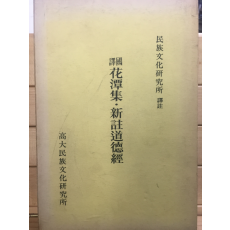 民族文化硏究所 譯註
國譯 花潭集·新註道德經
高大民族文化硏究所